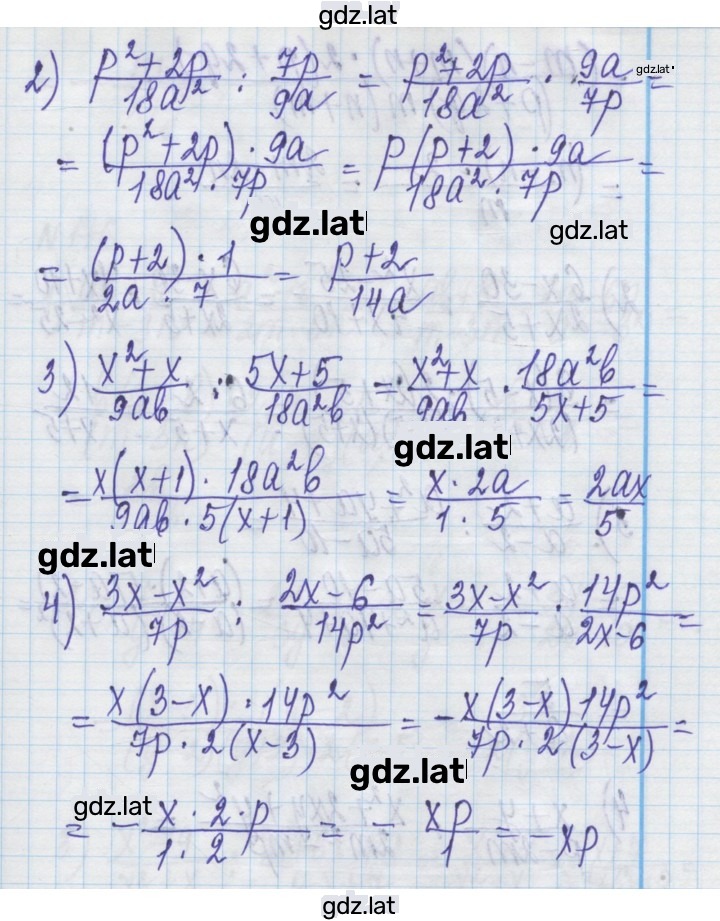 gdz.lat
2) (p²+2p)/(18a²) : (7p)/(9a) = (p²+2p)/(18a²) · (9a)/(7p) =
gdz.lat
= ((p²+2p) · 9a)/(18a² · 7p) = (p(p+2) · 9a)/(18a² · 7p) =
gdz.lat
gdz.lat
= ((p+2) · 1)/(2a · 7) = (p+2)/(14a)
3) (x²+x)/(9ab) : (5x+5)/(18a²b) = (x²+x)/(9ab) · (18a²b)/(5x+5) =
gdz.lat
= (x(x+1) · 18a²b)/(9ab · 5(x+1)) = (x · 2a)/(1 · 5) = (2ax)/5
gdz.lat
4) (3x-x²)/(7p) : (2x-6)/(14p²) = (3x-x²)/(7p) · (14p²)/(2x-6) =
= (x(3-x) · 14p²)/(7p · 2(x-3)) = -(x(3-x)14p²)/(7p · 2(3-x)) =
gdz.lat
gdz.lat
= -(x · 2 · p)/(1 · 2) = -(xp)/1 = -xp
gdz.lat